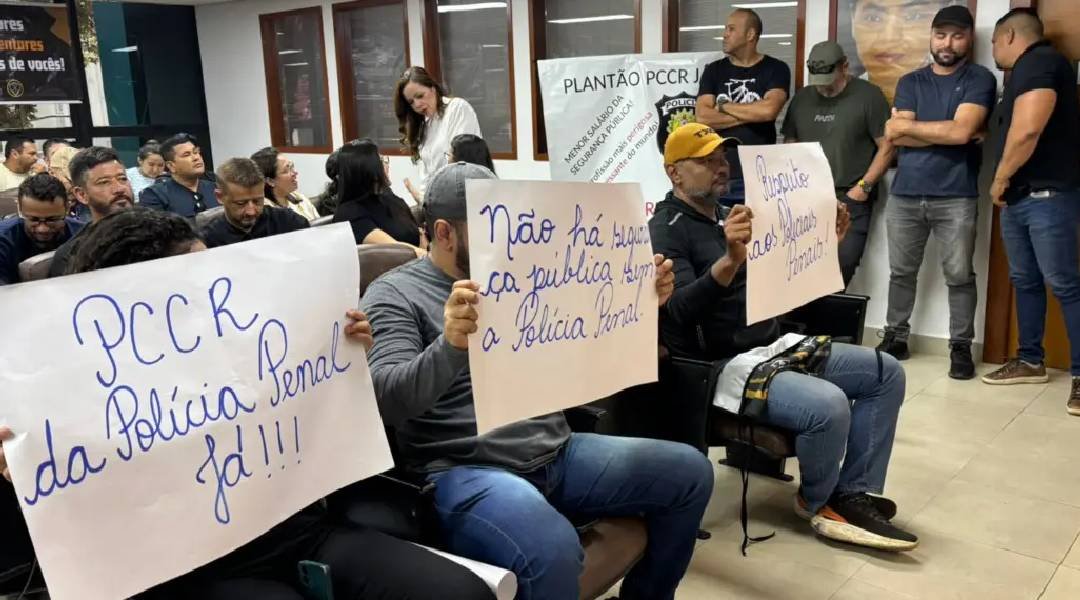 ores
entores
s de vocês!
PLANTÃO PCCR J
MENOR SALÁRIO DA
SEGURANÇA PÚBLICA!
ofissão mais perigosa
ssante do mundo
POLÍCIA
R
PCCR
da Polícia Penal
Já!!!
Não há seguran
ça pública sem
a Polícia Penal.
Respeito
aos Policiais
Penais!